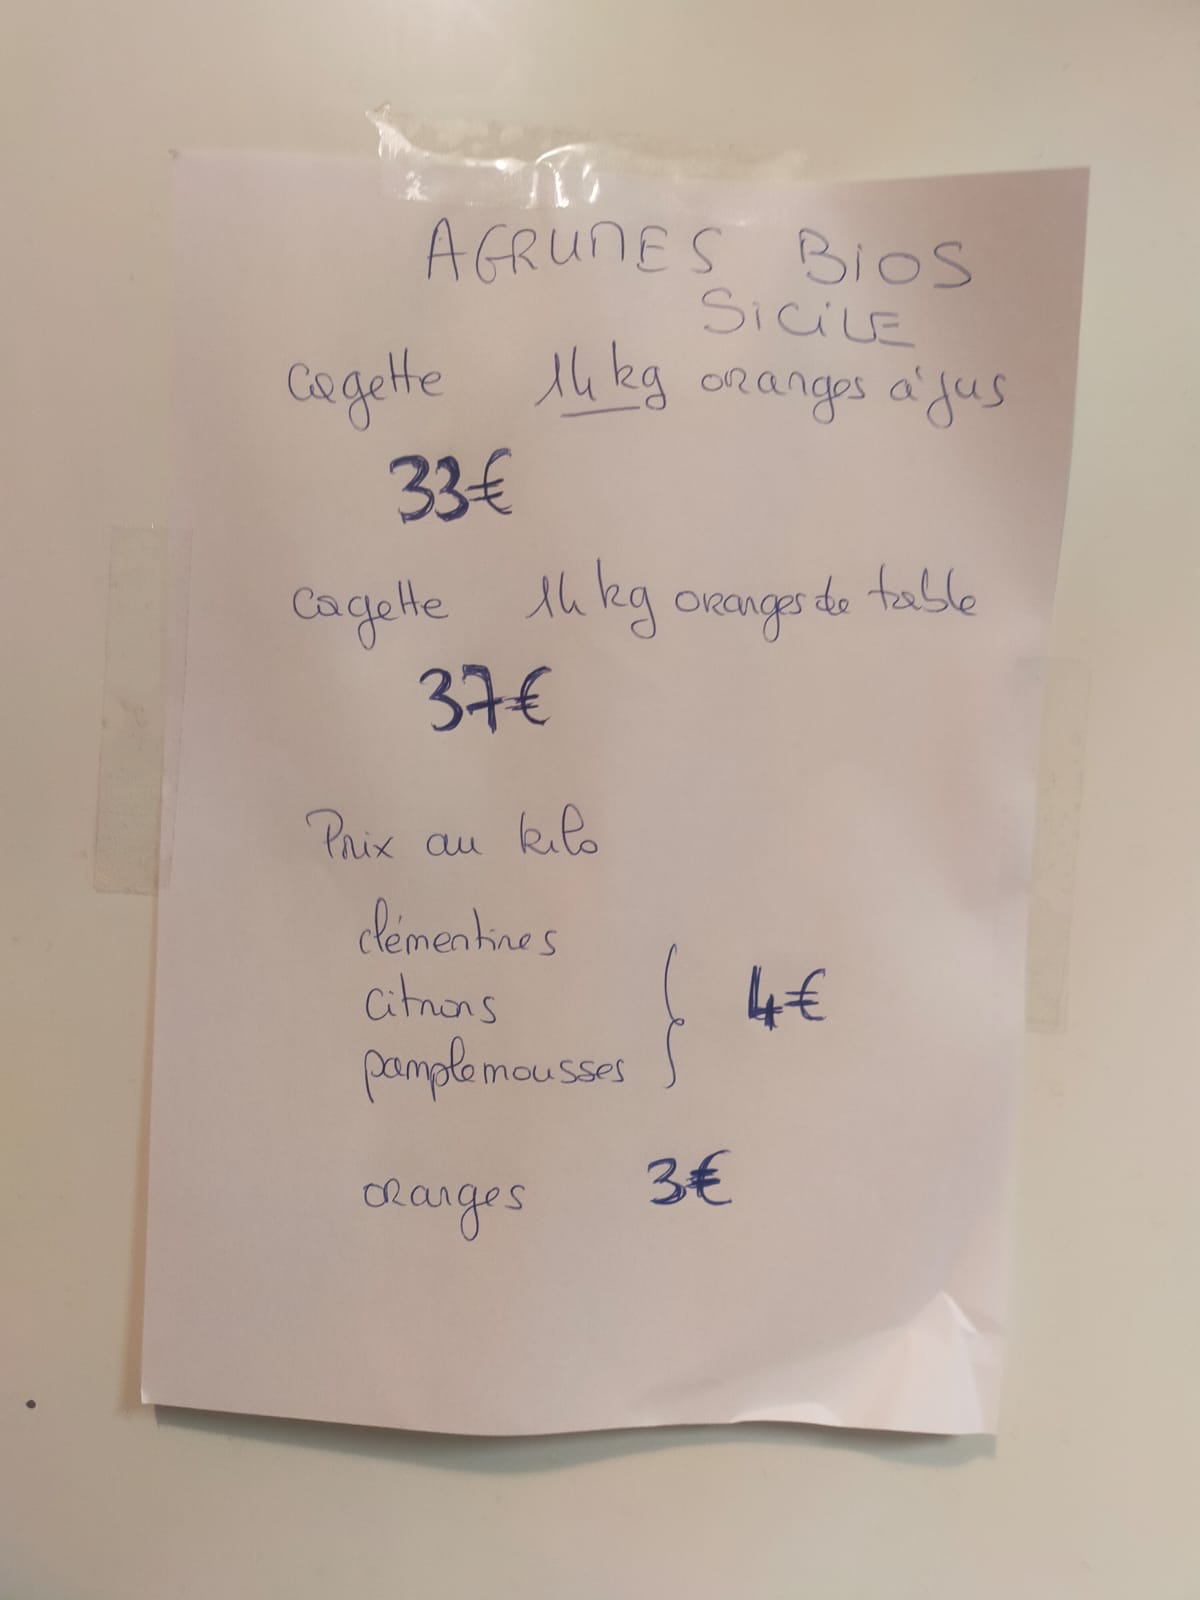 AGRUMES BIOS
SICILE
cagette 14 kg oranges à jus
33€
cagette 14 kg oranges de table
37€
Prix au kilo
clémentines
citrons
4€
pamplemousses
oranges 3€